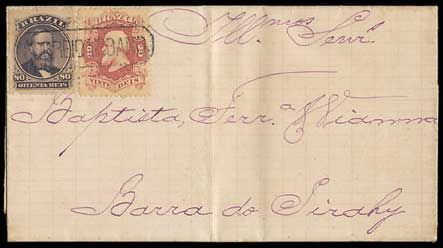 BRAZIL
80 80
OITENTA REIS
BRAZIL
20 20
VINTE REIS
Ill.mos Senrs
Baptista, Ferr.a Vianna
Barra do Pirahy